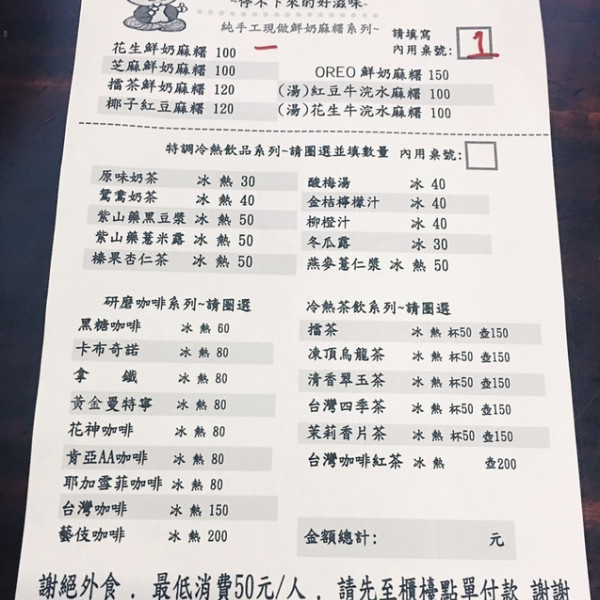 ~停不下來的好滋味~
純手工現做鮮奶麻糬系列~
請填寫
內用桌號:
1
花生鮮奶麻糬 100 一
芝麻鮮奶麻糬 100
OREO 鮮奶麻糬 150
擂茶鮮奶麻糬 120
(湯)紅豆牛浣水麻糬 100
椰子紅豆麻糬 120
(湯)花生牛浣水麻糬 100
特調冷熱飲品系列~請圈選並填數量 內用桌號:
原味奶茶 冰 熱 30
酸梅湯 冰 40
鴛鴦奶茶 冰 熱 40
金桔檸檬汁 冰 40
紫山藥黑豆漿 冰 熱 50
柳橙汁 冰 40
紫山藥薏米露 冰 熱 50
冬瓜露 冰 30
榛果杏仁茶 冰 熱 50
燕麥薏仁漿 冰 熱 50
研磨咖啡系列~請圈選
黑糖咖啡 冰 熱 60
卡布奇諾 冰 熱 80
拿 鐵 冰 熱 80
黃金曼特寧 冰 熱 80
花神咖啡 冰 熱 80
肯亞AA咖啡 冰 熱 80
耶加雪菲咖啡 冰 熱 80
台灣咖啡 冰 熱 150
藝伎咖啡 冰 熱 200
冷熱茶飲系列~請圈選
擂茶 冰 熱 杯50 壺150
凍頂烏龍茶 冰 熱 杯50 壺150
清香翠玉茶 冰 熱 杯50 壺150
台灣四季茶 冰 熱 杯50 壺150
茉莉香片茶 冰 熱 杯50 壺150
台灣咖啡紅茶 冰 熱 壺200
金額總計: 元
謝絕外食 . 最低消費50元/人 . 請先至櫃檯點單付款 謝謝